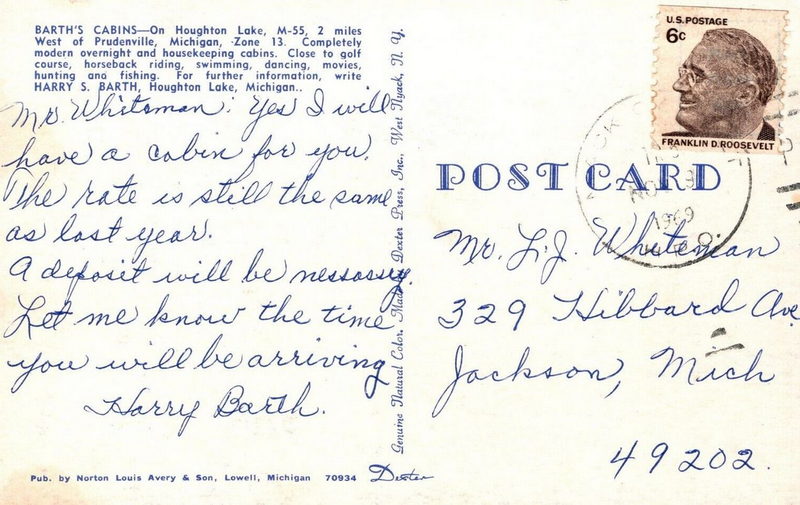 BARTH'S CABINS—On Houghton Lake, M-55, 2 miles
West of Prudenville, Michigan, Zone 13. Completely
modern overnight and housekeeping cabins. Close to golf
course, horseback riding, swimming, dancing, movies,
hunting and fishing. For further information, write
HARRY S. BARTH, Houghton Lake, Michigan..
Mr. Whiteman: Yes I will
have a cabin for you.
The rate is still the same
as last year.
A deposit will be nessossey.
Let me know the time
you will be arriving
Harry Barth.
Pub. by Norton Louis Avery & Son, Lowell, Michigan 70934 Dexter
Genuine Natural Color. Made by Dexter Press, Inc., West Nyack, N. Y.
U.S. POSTAGE
6c
FRANKLIN D. ROOSEVELT
1969
POST CARD
Mr. L.J. Whiteman
329 Hibbard Ave
Jackson, Mich
49202.